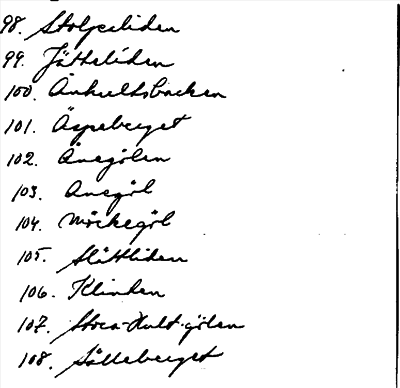 98. Stolpaliden
99. Jätteliden
100. Änhultsbacken
101. Äspeberget
102. Ånegölen
103. Anegöl
104. Mörkegöl
105. Slättliden
106. Klinten
107. Stora-Hult-gölen
108. Sälleberget